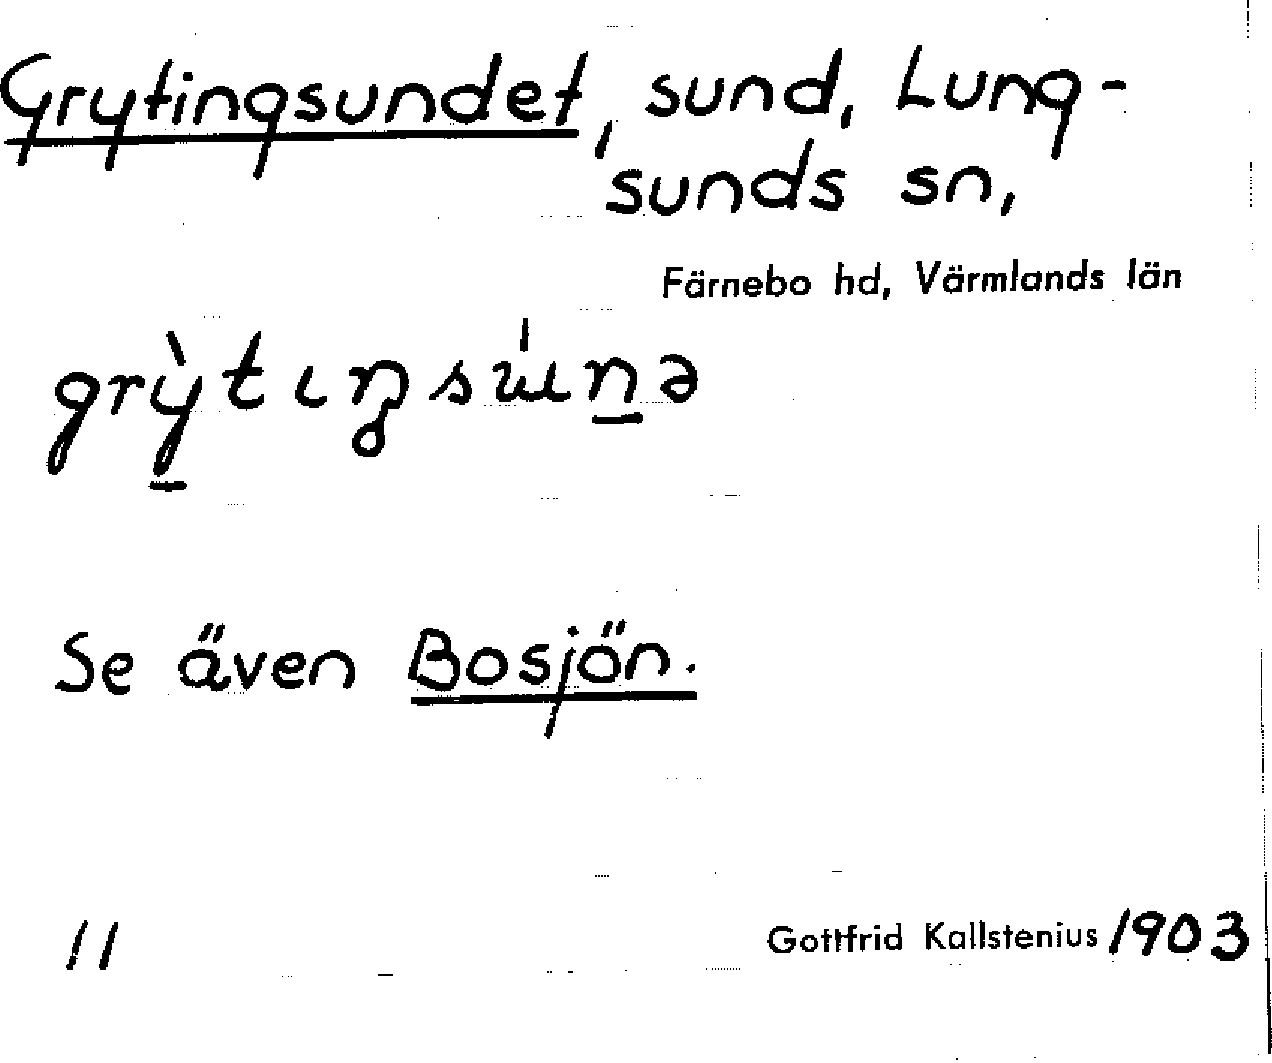 Grytingsundet, sund, Lung-
sunds sn,
Färnebo hd, Värmlands län
Se även Bosjön.
11
Gottfrid Kallstenius 1903